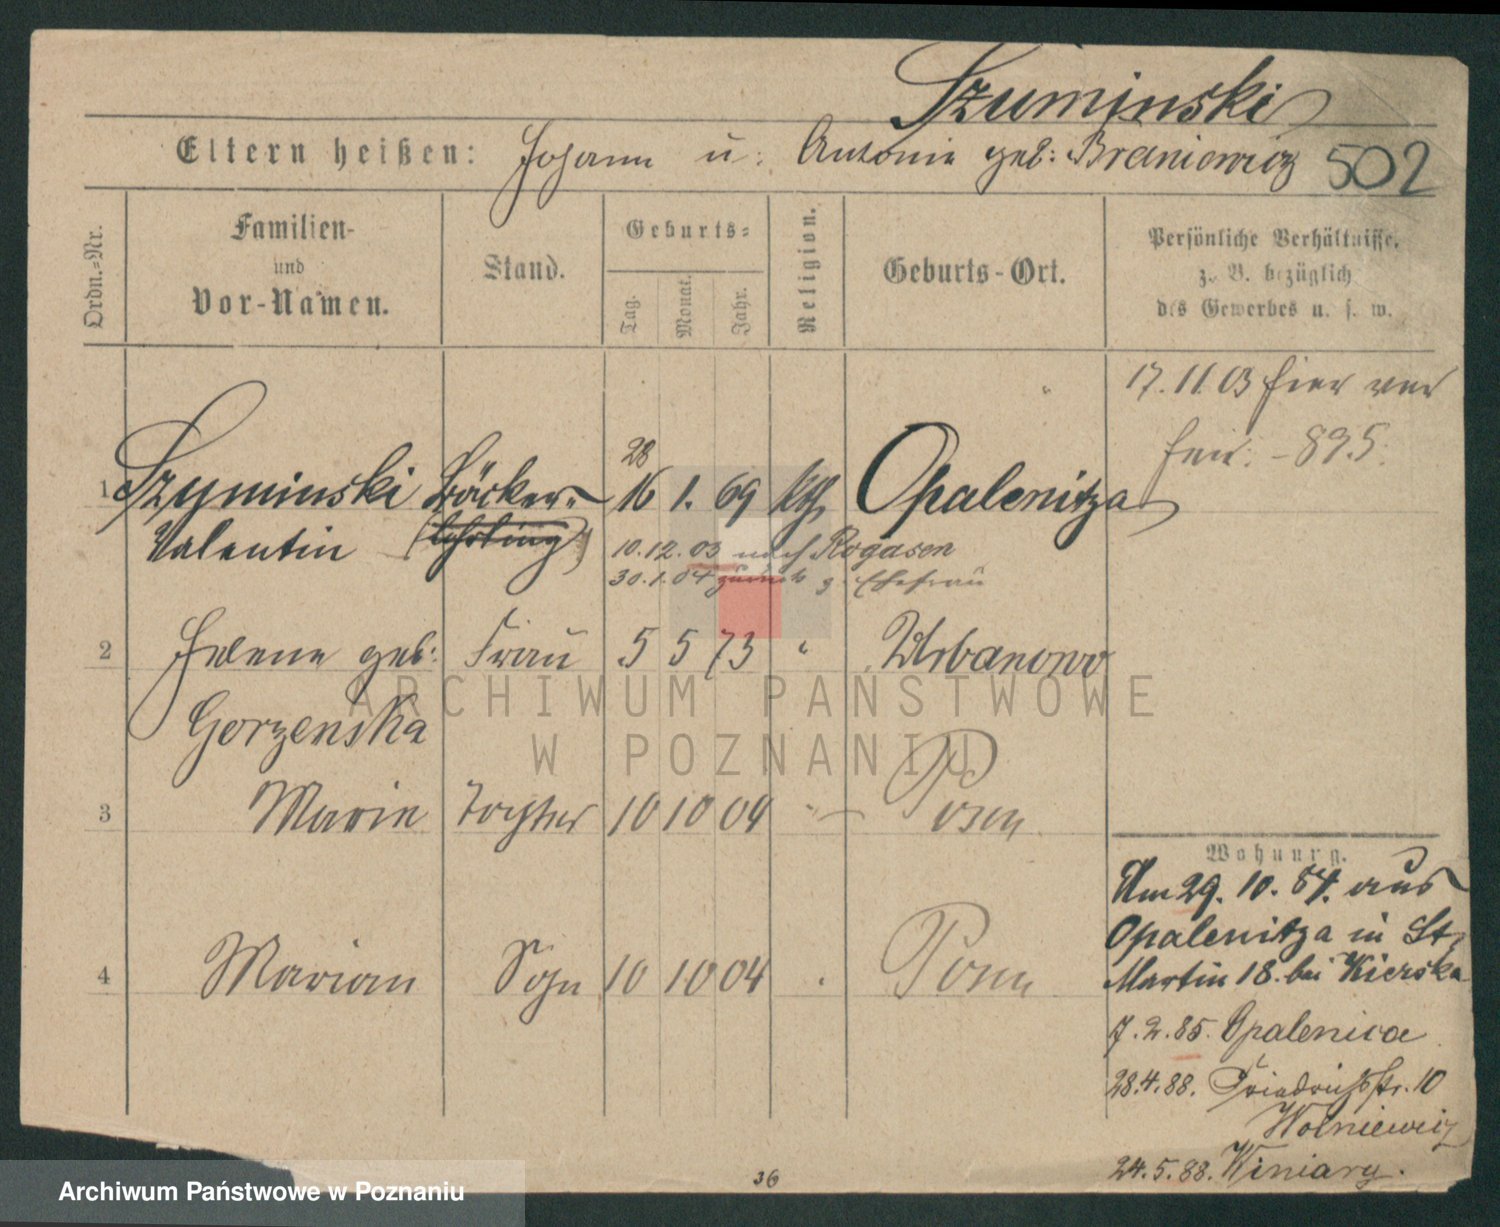 Szuminski
Eltern heißen: Johann u: Antonie geb: Braniewicz 502
Ordn.-Nr.
Familien-
und
Vor-Namen.
Stand.
Geburts-
Tag.
Monat.
Jahr.
Religion.
Geburts-Ort.
Persönliche Verhältnisse,
z. B. bezüglich
des Gewerbes u. s. w.
17.11.03 hier ver
heir. - 895.
28
1 Szyminski Bäcker- 16 1. 69 kth Opalenitza
Valentin (lehrling)
10.12.03 nach Rogasen
30.1.04 zurück z. Ehefrau
2 Helene geb: Frau 5 5 73 " Urbanowo
Gorzenska
3 Marie Tochter 10 10 04 " Posen
4 Marian Sohn 10 10 04 " Posen
Wohnung.
Am 29. 10. 84. aus
Opalenitza in St.
Martin 18. bei Kierska
7. 2. 85. Opalenica
28.4.88. Friedrichstr. 10
Wolniewicz
24.5.88. Winiary.
36
ARCHIWUM PAŃSTWOWE
W POZNANIU
Archiwum Państwowe w Poznaniu